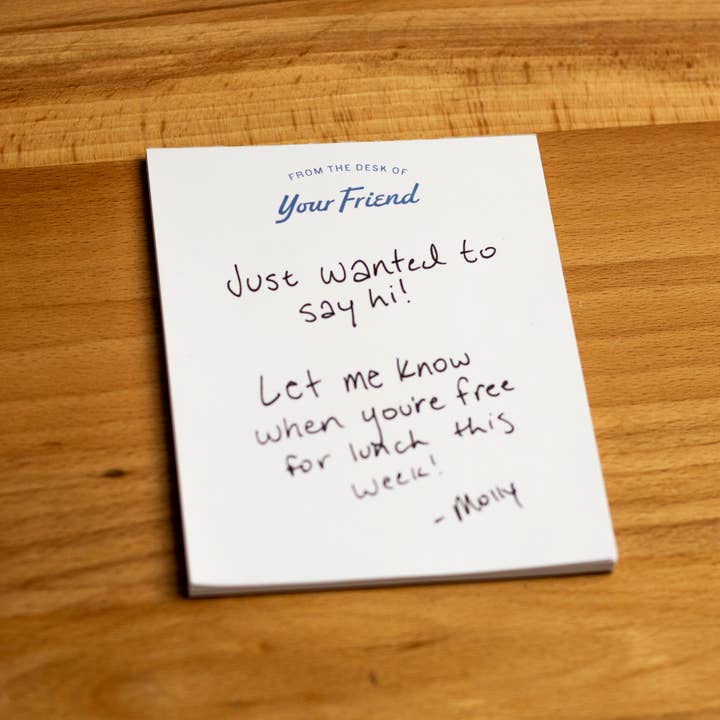 FROM THE DESK OF
Your Friend
Just wanted to
say hi!
Let me know
when you're free
for lunch this
week!
- Molly